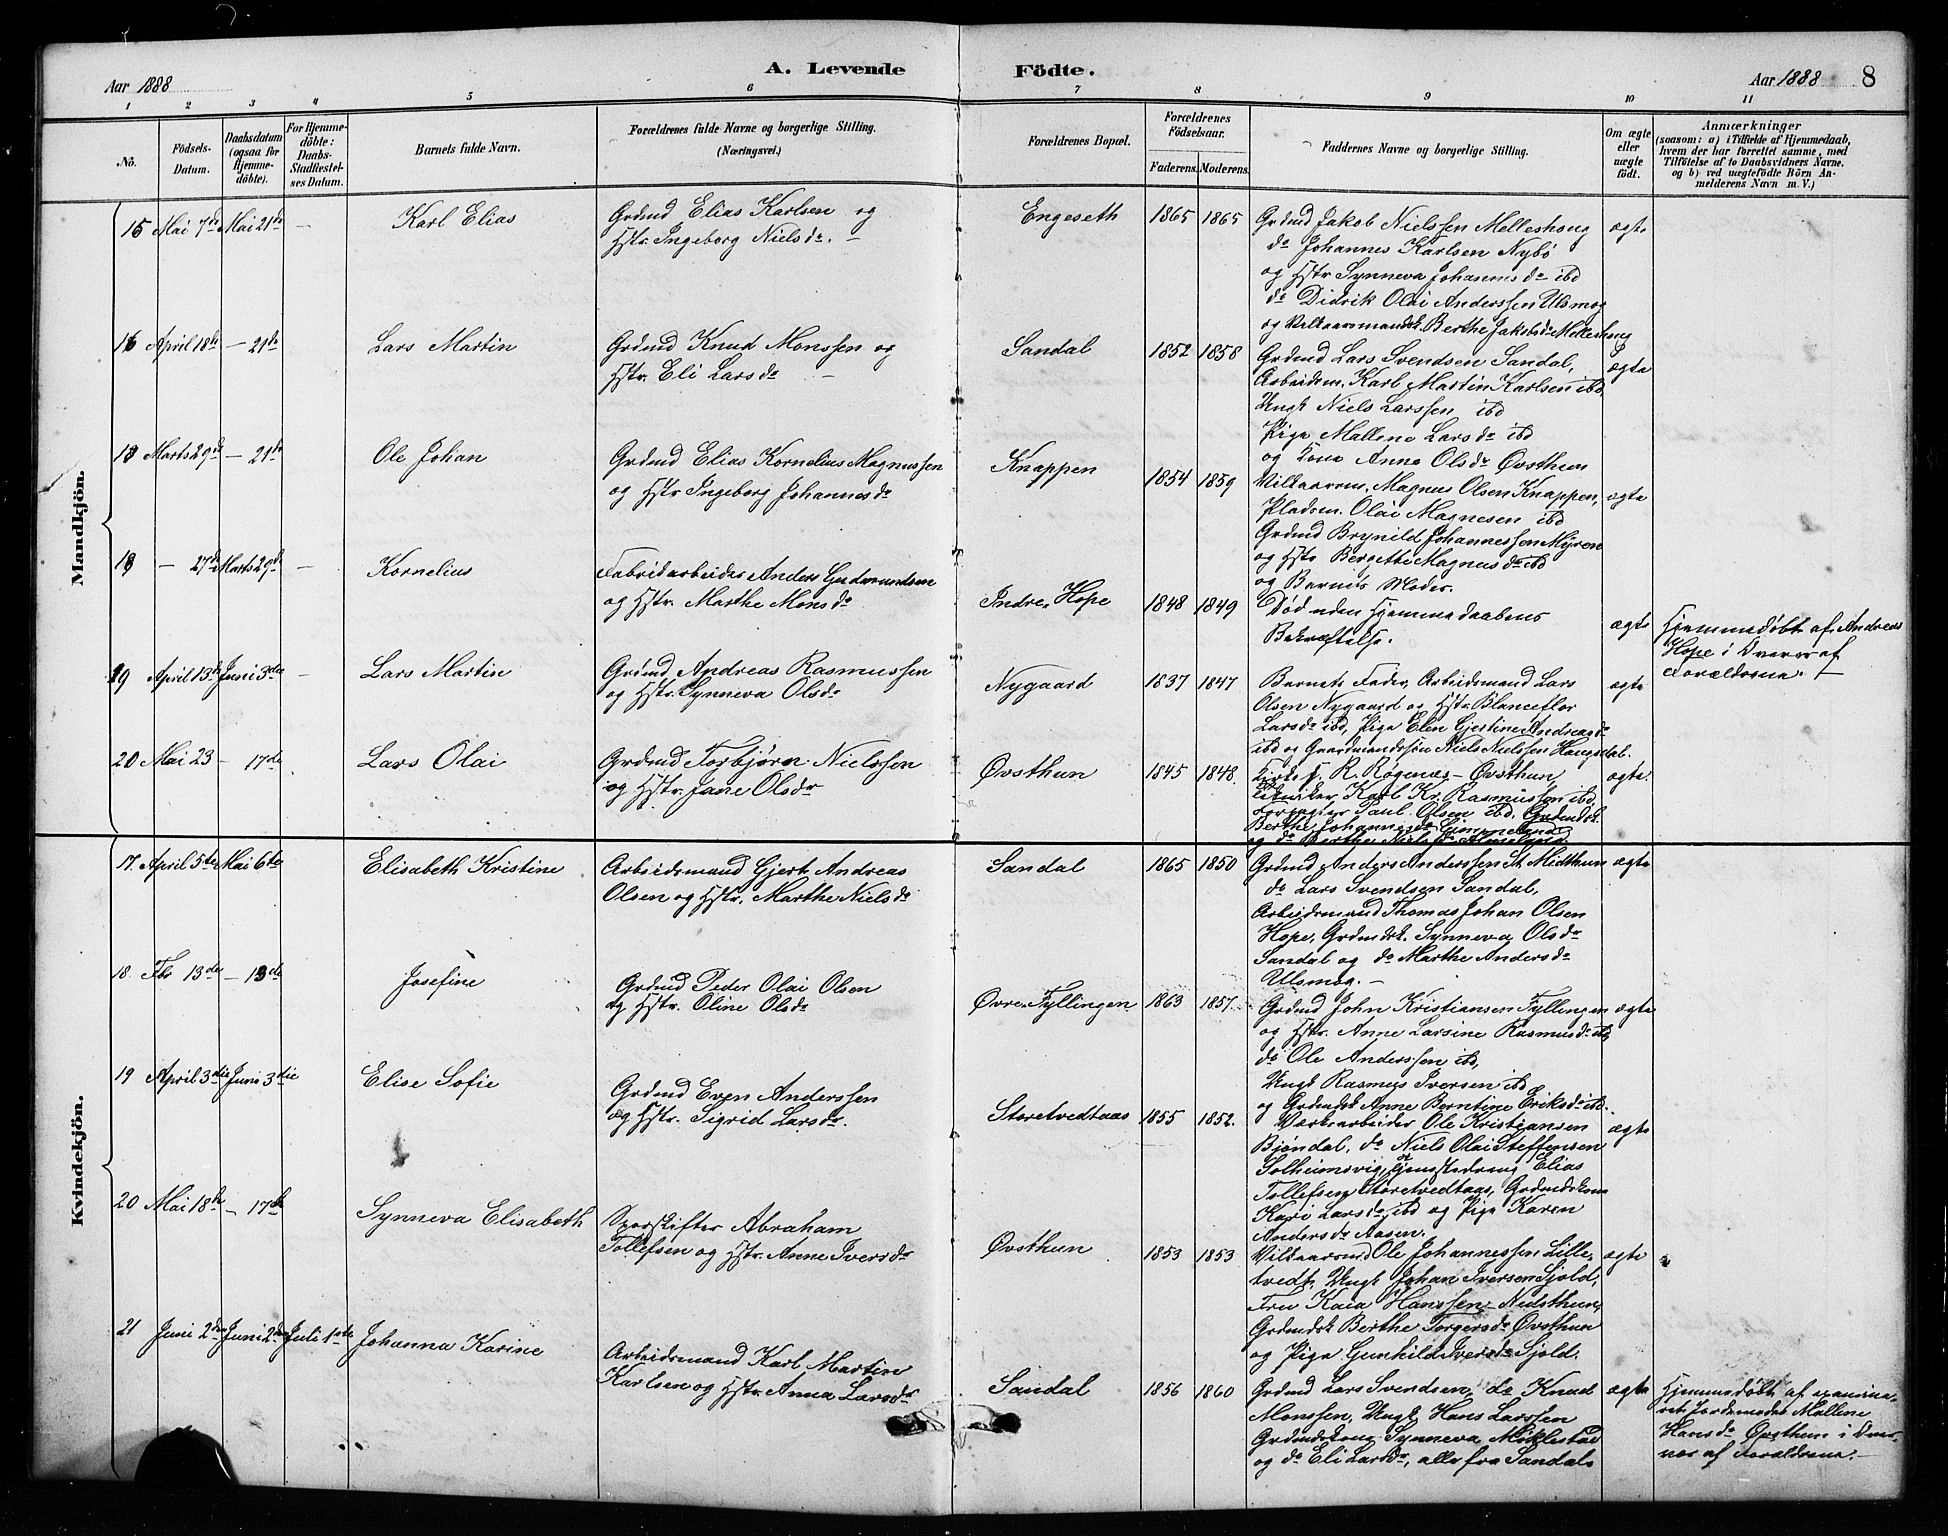 Aar 1888
A. Levende
Födte.
Aar 1888
8
1 2 3 4 5 6 7 8 9 10 11
No.
Födsels-
Datum.
Daabsdatum
(ogsaa for
Hjemme-
döbte).
For Hjemme-
döbte:
Daabs-
Stadfæstel-
ses Datum.
Barnets fulde Navn.
Forældrenes fulde Navne og borgerlige Stilling.
(Næringsvei.)
Forældrenes Bopæl.
Forældrenes
Födselsaar.
Faderens. Moderens.
Faddernes Navne og borgerlige Stilling.
Om ægte
eller
uægte
födt.
Anmærkninger
(saasom: a) i Tilfælde af Hjemmedaab,
hvem der har forrettet samme, med
Tilföielse af to Daabsvidners Navne,
og b) ved uægtefödte Börn An-
melderens Navn m. V.)
Mandkjön.
15 Mai 7de Mai 21de —
Karl Elias
Grdmd Elias Karlsen og
Hstr. Ingeborg Nielsdr. —
Engeseth
1865 1865
Grdmd Jakob Nielssen Melleshoug
do Johannes Karlsen Nybö
og Hstr Synneva Johannisdr ibd
do Didrik Olai Anderssen Ulsmog
og Vilkaarsmandsk. Berthe Jaksdr Melleshoug
ægte
16 April 18de — 21de
Lars Martin
Grdmd Knud Monssen og
Hstr. Eli Larsdr —
Sandal
1852 1858
Grdmd Lars Svendsen Sandal,
Arbeidsm. Karl Martin Karlsen ibd,
Ungk Niels Larssen ibd
Pige Mallene Larsdr ibd
og Kone Anna Olsdr Øvsthun
ægte
Marts 29de — 21de
Ole Johan
Grdmd Elias Kornelius Magnussen
og Hstr Ingeborg Johannesdr
Knappen
1854 1859
Vilkaarsm. Magnus Olsen Knappen,
Pladsm. Olai Magnesen ibd
Grdmd Brynild Johannessen Myren
og Hstr Bergette Magnusdr ibd
og Barnets Moder.
ægte
— 27de Marts 29de —
Kornelius
Fabrikarbeider Anders Gudmundsen
og Hstr. Marthe Monsdr
Indre Hope
1848 1849
Död uden Hjemmedaabens
Bekræftelse.
ægte
Hjemmedöbt af Andreas
Hope i Nærvær af
Forældrene. —
19 April 13de Juni 3die —
Lars Martin
Grdmd Andreas Rasmussen
og Hstr. Synneva Olsdr
Nygaard
1837 1847
Barnets Fader, Arbeidsmand Lars
Olsen Nygaard og Hstr. Blanceflor
Larsdr ibd, Pige Elen Gjestine Andreasdr
ibd og Gaardmandssön Niels Nielssen Haugsdal.
ægte
20 Mai 23 — 17de
Lars Olai
Grdmd Torbjörn Nielssen
og Hstr. Jane Olsdr
Øvsthun
1845 1848.
Kirkes. R. Røgenæs — Øvsthun,
Tekniker Karl Kr. Rasmussen ibd
Paul Olsen ibd, Grdmdsk.
Berthe Johannesdr
og do Berthe Nielsdr
ægte.
Kvindekjön.
17 April 5te Mai 6te
Elisabeth Kristine
Arbeidsmand Gjert Andreas
Olsen og Hstr. Marthe Nielsdr
Sandal
1865 1850
Grdmd Anders Anderssen St. Midthun
do Lars Svendsen Sandal,
Arbeidsmand Thomas Johan Olsen
Hope, Grdmdsk. Synneva Olsdr
Sandal og do Marthe Andersdr
Ulsmog. —
ægte
18 Fbr 13de — 13de
Josefine
Grdmd Peder Olai Olsen
og Hstr. Oline Olsdr
Øvre Fyllingen
1863 1857.
Grdmd John Kristiansen Fyllingen
og Hstr. Anne Larsine Rasmusdr ibd,
do Ole Anderssen ibd,
Ungk Rasmus Iversen ibd
og Grdmdsk Anne Berntine Eriksdr ibd.
ægte
19 April 3die Juni 3die
Elise Sofie
Grdmd Even Anderssen
og Hstr. Sigrid Larsdr.
Storetvedtaas
1855 1852.
Værksarbeider Ole Kristiansen
Bjöndal, do Niels Olai Steffensen
Solheimsvig, Tjenestedreng Elias
Tollefsen Storetvedtaas, Grdmdskone
Kari Larsdr ibd og Pige Karen
Andersdr Aasen.
ægte
20 Mai 18de — 17de
Synneva Elisabeth
Sporskifter Abraham
Tollefsen og Hstr. Anne Iversdr
Øvsthun
1853 1853
Vilkaarsmd Ole Johannessen Lille-
tvedt, Ungk Johan Iversen Sjold,
Fru Kaia Hanssen — Nedsthun,
Grdmdsk Berthe Torgersdr Øvsthun
og Pige Gunhild Iversdr Sjold.
ægte
21 Juni 2den Juni 2den Juli 1ste
Johanna Karine
Arbeidsmand Karl Martin
Karlsen og Hstr. Anna Larsdr
Sandal
1856 1860
Grdmd Lars Svendsen, do Knud
Monssen, Ungk Hans Larssen
Grdmdskone Synneva Miklestad
og do Eli Larsdr, alle fra Sandal
ægte
Hjemmedöbt af examine-
ret Jordemoder Mallene
Hansdr Øvsthun i Nær-
vær af Forældrene. —